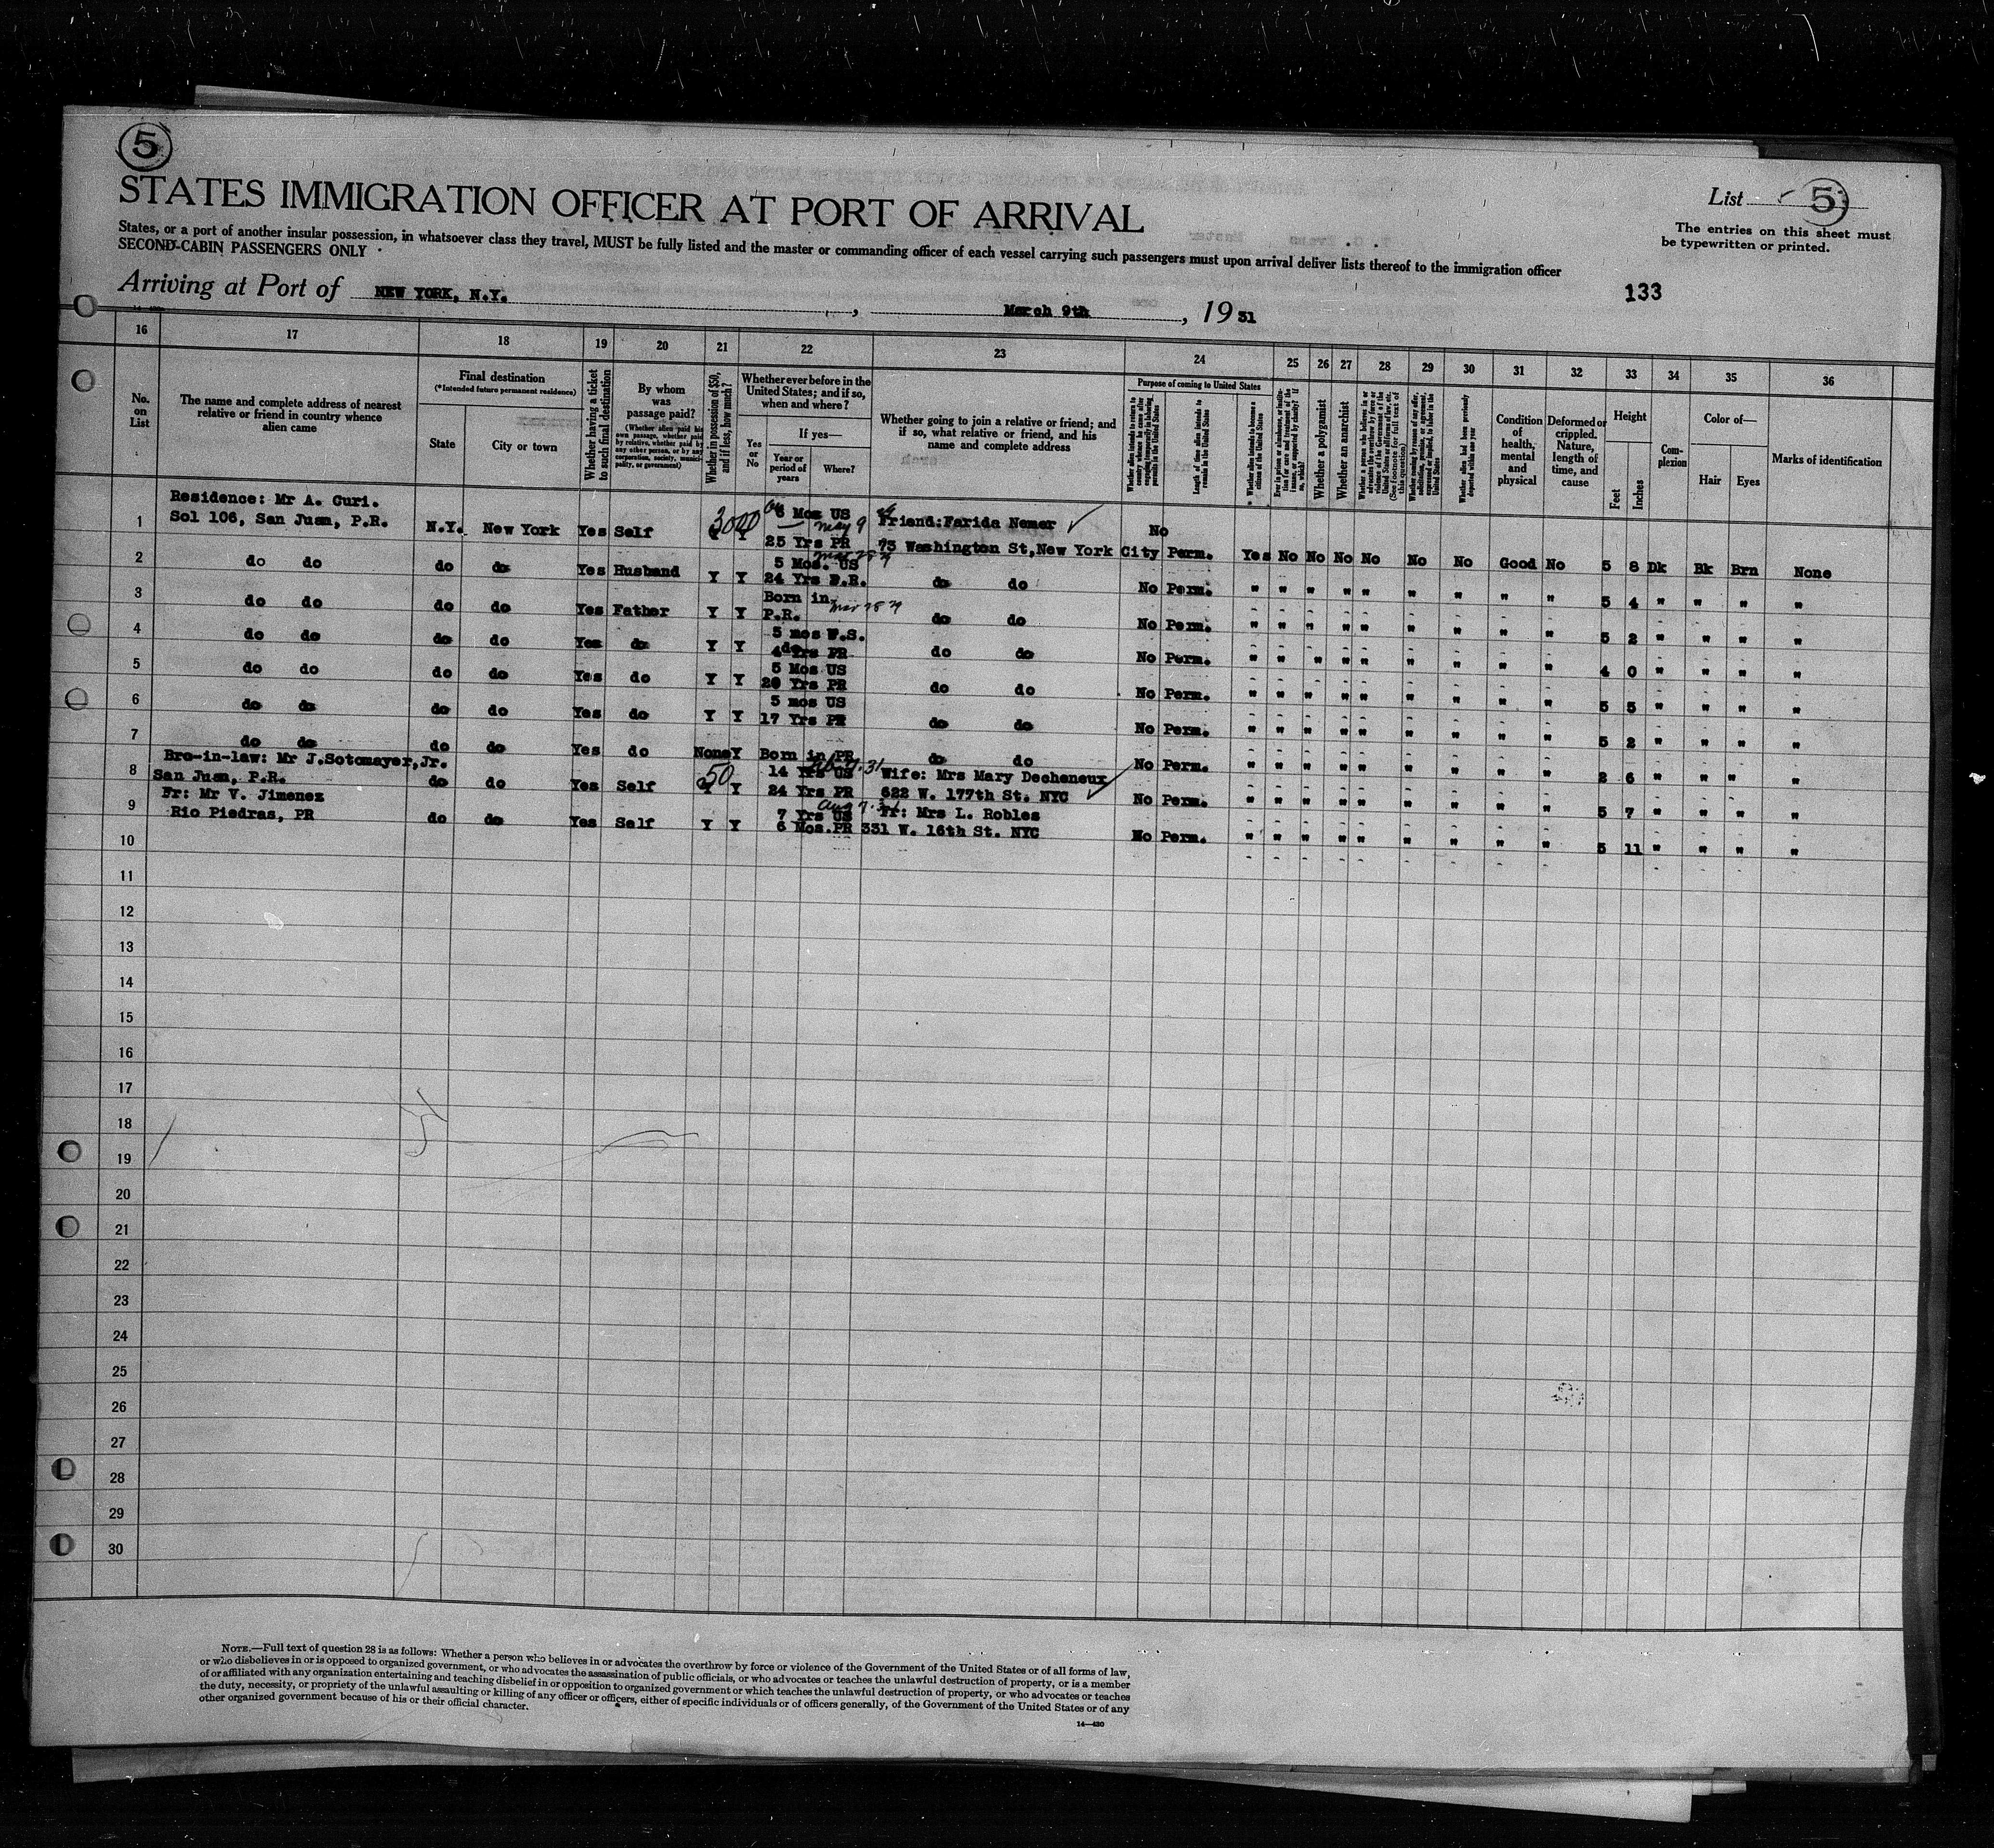 5
STATES IMMIGRATION OFFICER AT PORT OF ARRIVAL
List 5
The entries on this sheet must
be typewritten or printed.
States, or a port of another insular possession, in whatsoever class they travel, MUST be fully listed and the master or commanding officer of each vessel carrying such passengers must upon arrival deliver lists thereof to the immigration officer
SECOND-CABIN PASSENGERS ONLY
Arriving at Port of NEW YORK, N.Y., March 9th, 1931
133
16 17 18 19 20 21 22 23 24 25 26 27 28 29 30 31 32 33 34 35 36
No. on List
The name and complete address of nearest relative or friend in country whence alien came
Final destination
(*Intended future permanent residence)
State
City or town
Whether having a ticket to such final destination
By whom was passage paid?
(Whether alien paid his own passage, whether paid by relative, whether paid by any other person, or by any corporation, society, municipality, or government)
Whether in possession of $50, and if less, how much?
Whether ever before in the United States; and if so, when and where?
Yes or No
If yes—
Year or period of years
Where?
Whether going to join a relative or friend; and if so, what relative or friend, and his name and complete address
Purpose of coming to United States
Whether alien intends to return to country whence he came after engaging temporarily in laboring pursuits in the United States
Length of time alien intends to remain in the United States
* Whether alien intends to become a citizen of the United States
Ever in prison or almshouse, or institution for care and treatment of the insane, or supported by charity? If so, which?
Whether a polygamist
Whether an anarchist
Whether a person who believes in or advocates the overthrow by force or violence of the Government of the United States or all forms of law, etc. (See footnote for full text of this question)
Whether coming by reason of any offer, solicitation, promise, or agreement, expressed or implied, to labor in the United States
Whether alien had been previously deported within one year
Condition of health, mental and physical
Deformed or crippled. Nature, length of time, and cause
Height
Feet
Inches
Complexion
Color of—
Hair
Eyes
Marks of identification
Residence: Mr A. Curi.
1 Sol 106, San Juan, P.R. N.Y. New York Yes Self 3000 Y Y 6 Mos US May 9 25 Yrs PR Friend: Farida Nemer 73 Washington St, New York City No Perm. Yes No No No No No No Good No 5 8 Dk Bk Brn None
2 do do do do Yes Husband Y Y 5 Mos. US 24 Yrs P.R. do do No Perm. " " " " " " " " " 5 4 " " " "
3 do do do do Yes Father Y Y Born in P.R. do do No Perm. " " " " " " " " " 5 2 " " " "
4 do do do do Yes do Y Y 5 mos U.S. Yrs PR do do No Perm. " " " " " " " " " 4 0 " " " "
5 do do do do Yes do Y Y 5 Mos US 20 Yrs PR do do No Perm. " " " " " " " " " 5 5 " " " "
6 do do do do Yes do Y Y 5 mos US 17 Yrs PR do do No Perm. " " " " " " " " " 5 2 " " " "
7 do do do do Yes do None Y Born in PR do do No Perm. " " " " " " " " " 2 6 " " " "
Bro-in-law: Mr J.Sotomayor, Jr.
8 San Juan, P.R. do do Yes Self 50 Y Y 14 Yrs US 24 Yrs PR Wife: Mrs Mary Decheneux 622 W. 177th St. NYC No Perm. " " " " " " " " " 5 7 " " " "
Fr: Mr V. Jimenez
9 Rio Piedras, PR do do Yes Self Y Y Aug 7 7 Yrs US 6 Mos. PR Fr: Mrs L. Robles 331 W. 16th St. NYC No Perm. " " " " " " " " " 5 11 " " " "
10
11
12
13
14
15
16
17
18
19
20
21
22
23
24
25
26
27
28
29
30
NOTE.—Full text of question 28 is as follows: Whether a person who believes in or advocates the overthrow by force or violence of the Government of the United States or of all forms of law,
or who disbelieves in or is opposed to organized government, or who advocates the assassination of public officials, or who advocates or teaches the unlawful destruction of property, or is a member
of or affiliated with any organization entertaining and teaching disbelief in or opposition to organized government or which teaches the unlawful destruction of property, or who advocates or teaches
the duty, necessity, or propriety of the unlawful assaulting or killing of any officer or officers, either of specific individuals or of officers generally, of the Government of the United States or of any
other organized government because of his or their official character.
14—430